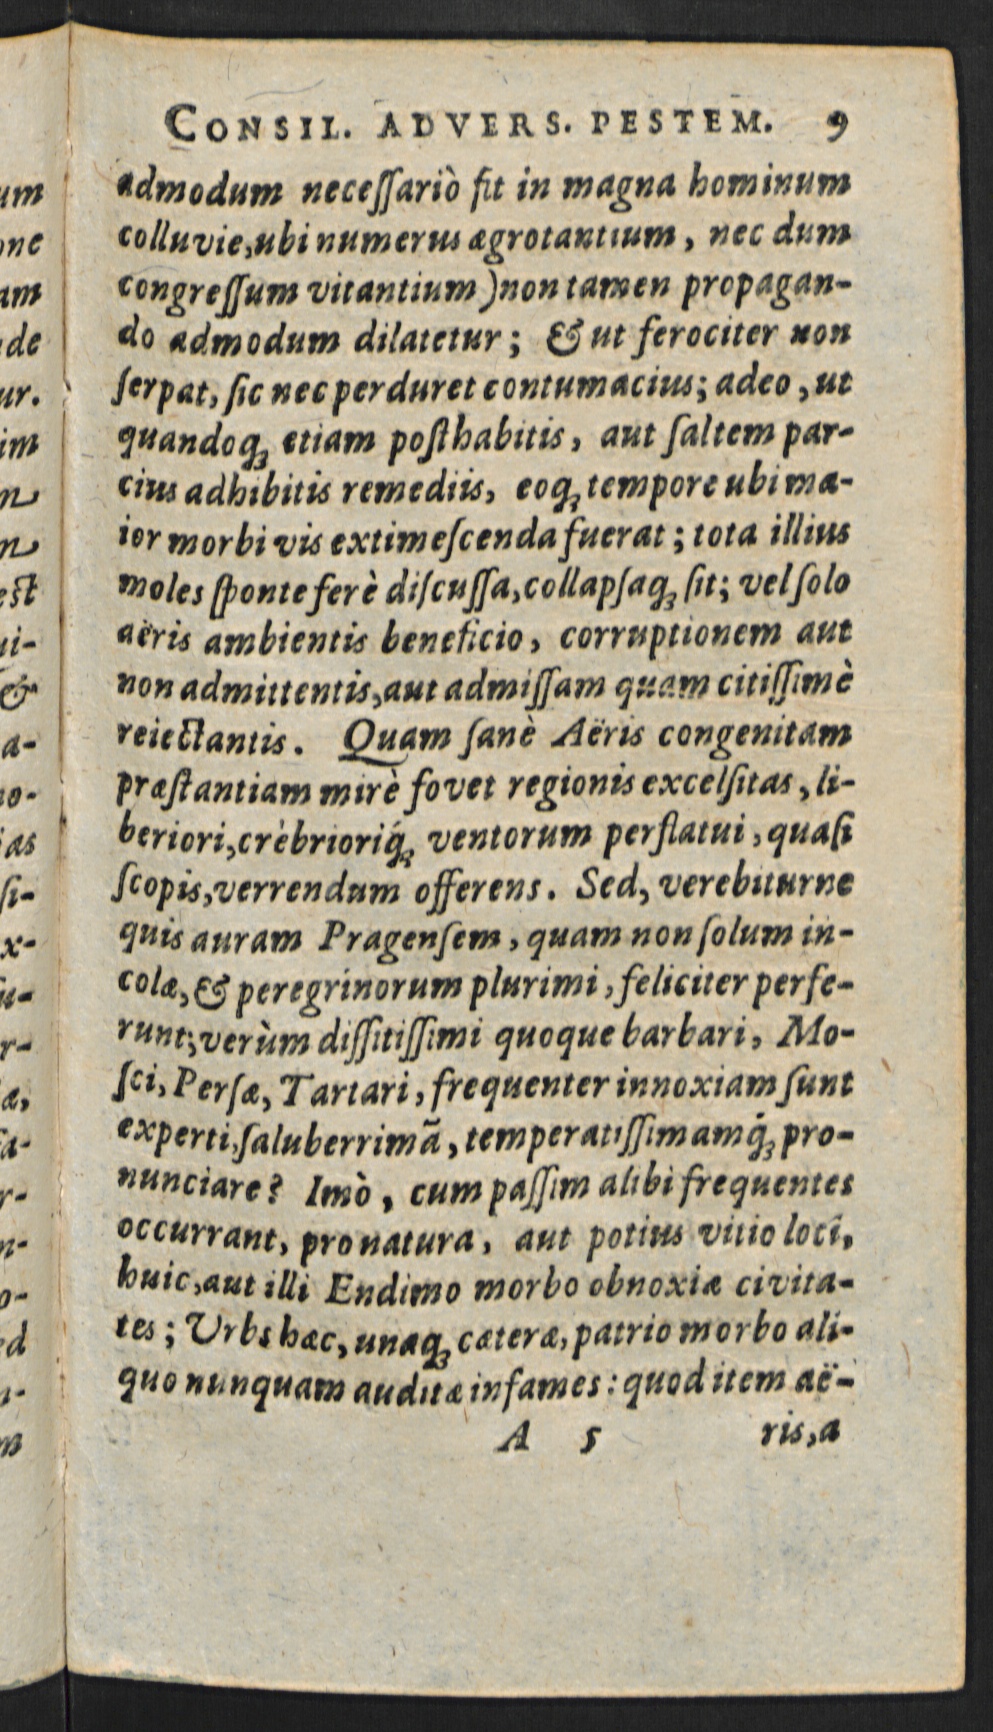 CONSIL. ADVERS. PESTEM. 9
admodum neceſſariò fit in magna hominum
colluvie, ubi numerus ægrotantium, nec dum
congreſſum vitantium) non tamen propagan-
do admodum dilatetur; & ut ferociter non
ſerpat, ſic nec perduret contumacius; adeo, ut
quandoq́ꝫ etiam poſthabitis, aut ſaltem par-
cius adhibitis remediis, eoqꝫ tempore ubi ma-
ior morbi vis extimeſcenda fuerat; tota illius
moles ſponte ferè diſcuſſa, collapſaqꝫ ſit; vel ſolo
aëris ambientis beneficio, corruptionem aut
non admittentis, aut admiſſam quam citiſſimè
reiectantis. Quam ſanè Aëris congenitam
præſtantiam mirè fovet regionis excelſitas, li-
beriori, crèbrioriq́ꝫ ventorum perflatui, quaſi
ſcopis, verrendum offerens. Sed, verebiturne
quis auram Pragenſem, quam non ſolum in-
colæ, & peregrinorum plurimi, feliciter perfe-
runt; verùm diſſitiſſimi quoque barbari, Mo-
ſci, Perſæ, Tartari, frequenter innoxiam ſunt
experti, ſaluberrimã, temperatiſſimamq́ꝫ pro-
nunciare? Imò, cum paſſim alibi frequentes
occurrant, pro natura, aut potius vitio loci,
huic, aut illi Endimo morbo obnoxiæ civita-
tes; Vrbs hæc, unaqꝫ cæteræ, patrio morbo ali-
quo nunquam auditæ infames: quod item aë-
A 5 ris, a
um
one
am
de
ur.
im
n
n
eſt
ui-
&
a-
no-
as
ſi-
x-
ſu-
r-
æ,
r-
n-
o-
ed
n-
m